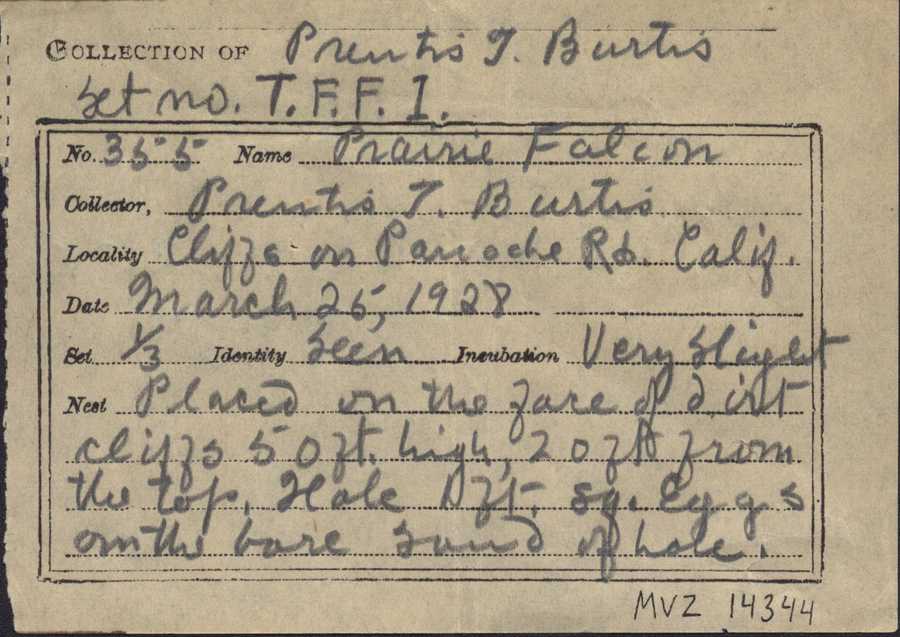 COLLECTION OF Prentis T. Burtis
Set no. T.F.F.I.
No. 355 Name Prairie Falcon
Collector, Prentis T. Burtis
Locality Cliffs on Panoche Rd. Calif.
Date March 25, 1928
Set 1/3 Identity Seen Incubation Very Slight
Nest Placed on the face of dirt
cliffs 50ft. high, 20ft from
the top. Hole ft. sq. Eggs
on the bare sand of hole.
MVZ 14344